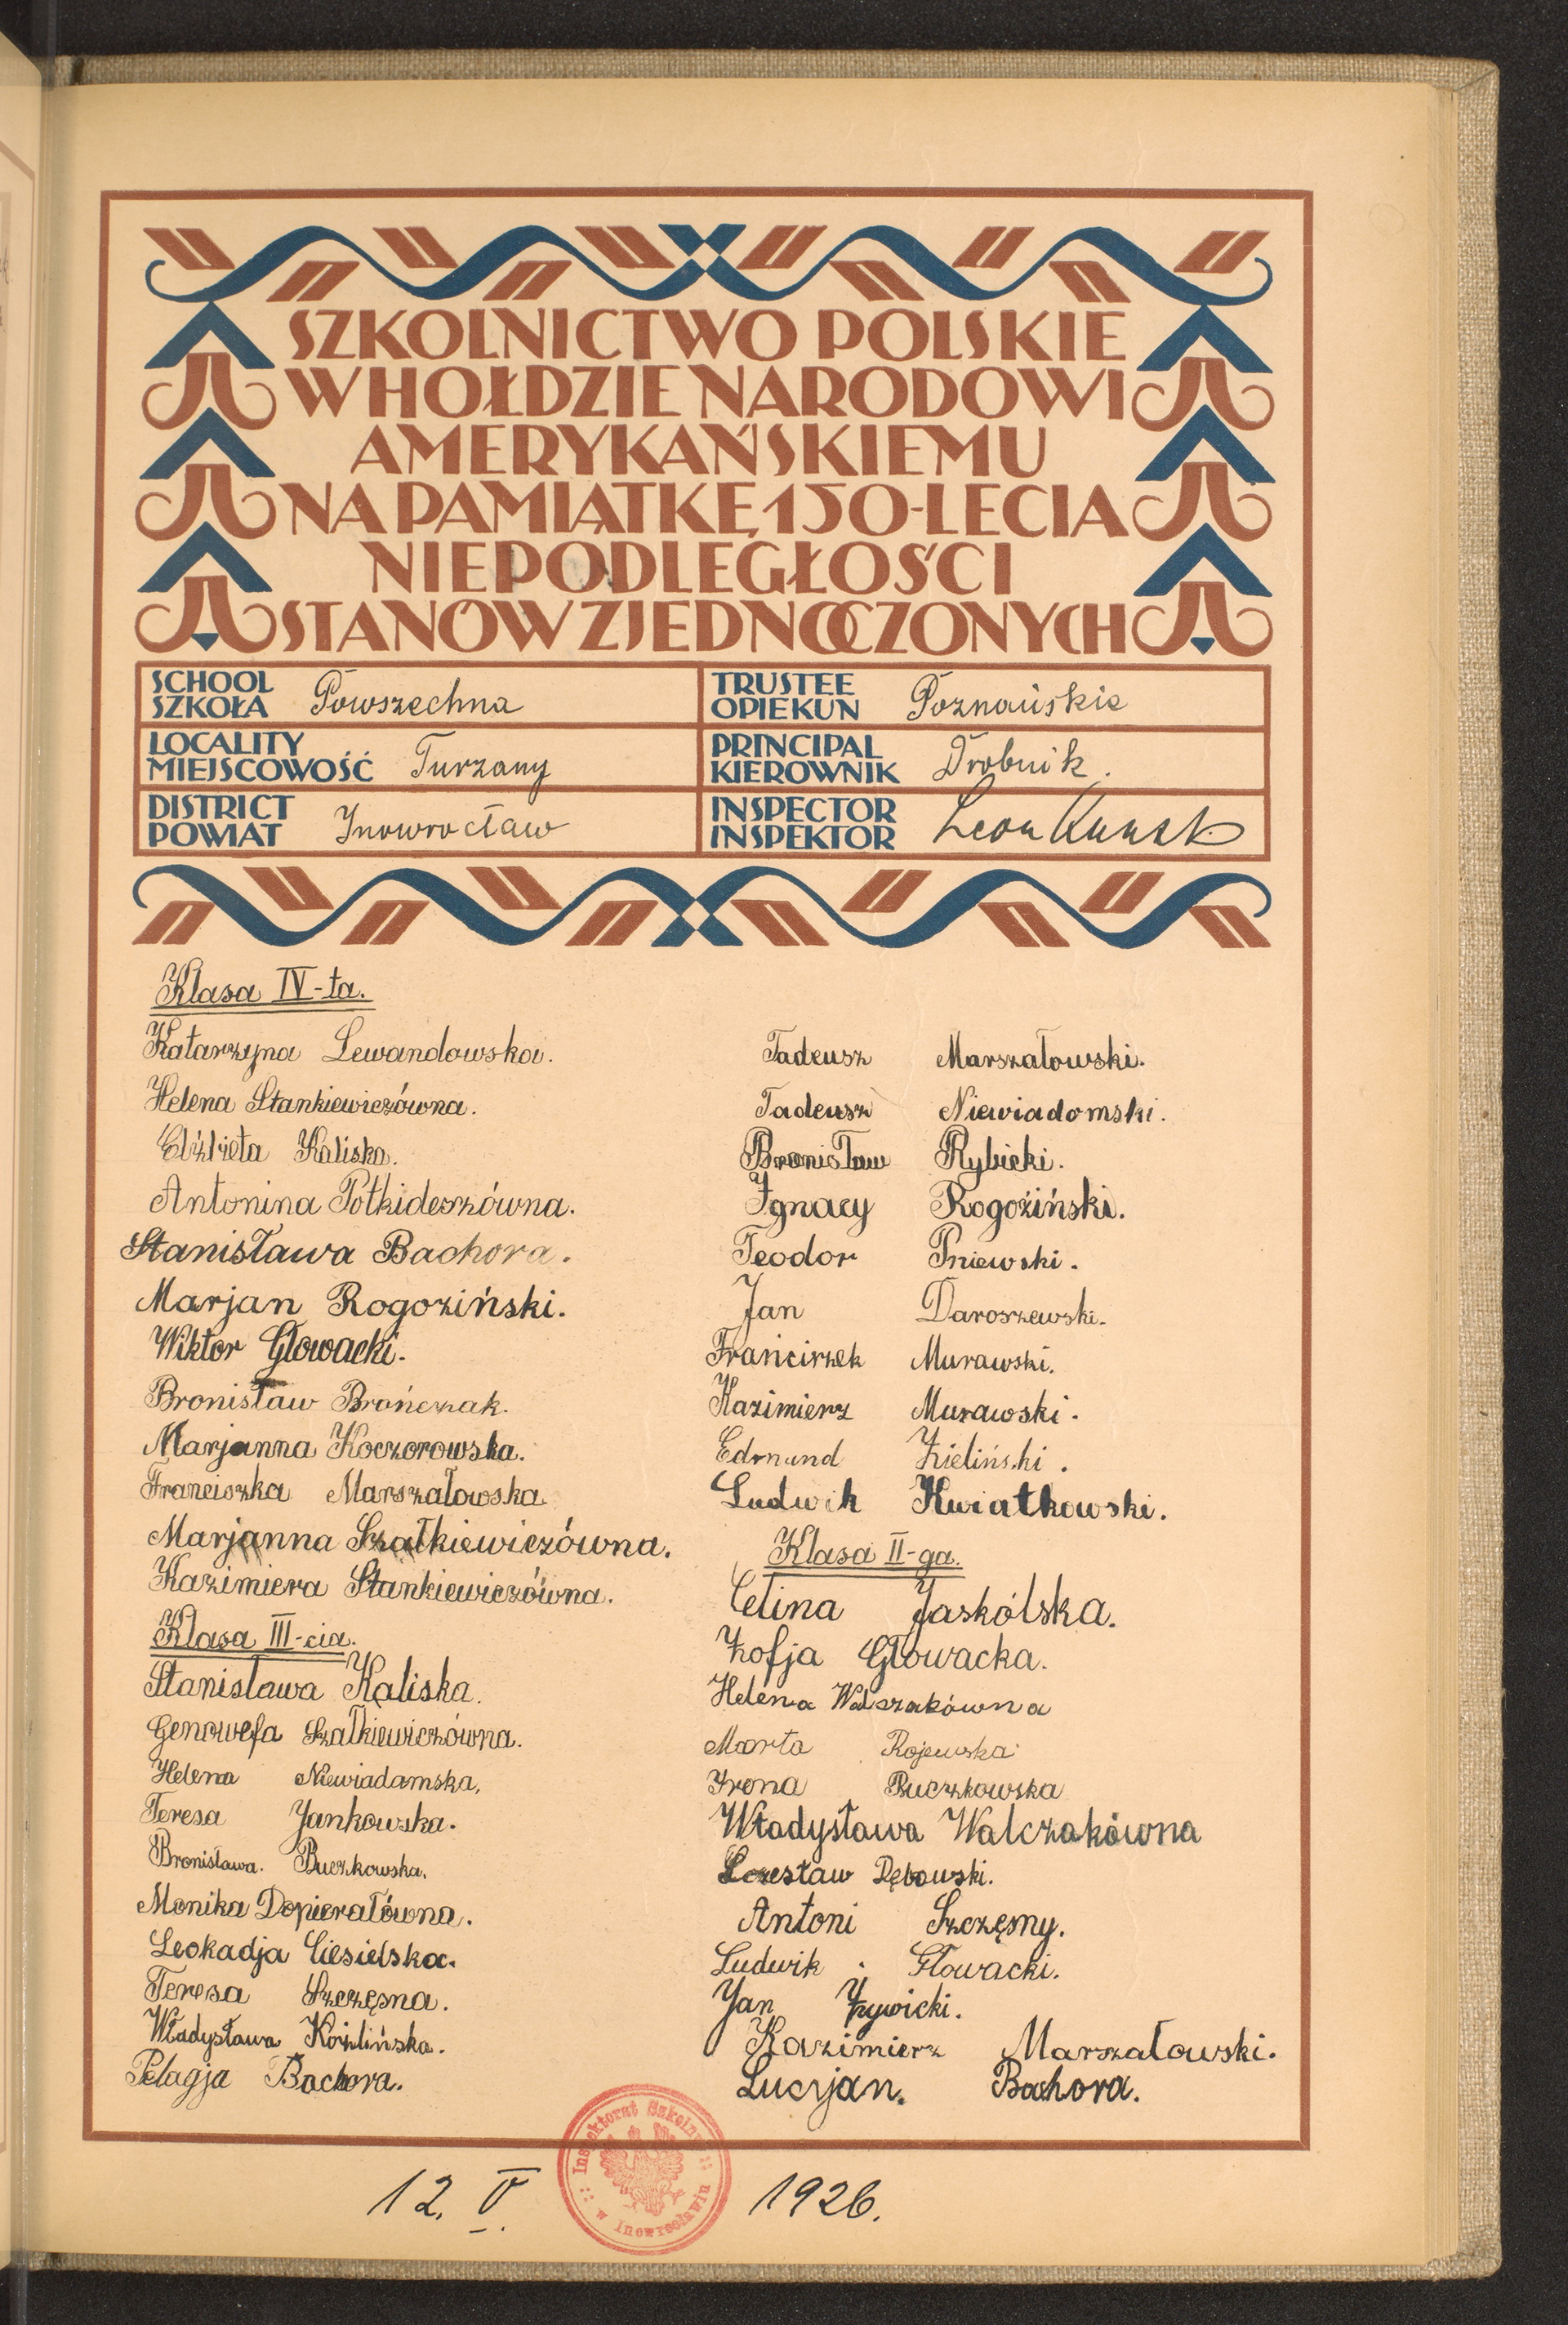 SZKOLNICTWO POLSKIE
W HOŁDZIE NARODOWI
AMERYKAŃSKIEMU
NA PAMIĄTKĘ 150-LECIA
NIEPODLEGŁOŚCI
STANÓW ZJEDNOCZONYCH
SCHOOL
SZKOŁA Powszechna
TRUSTEE
OPIEKUN Poznańskie
LOCALITY
MIEJSCOWOŚĆ Turzany
PRINCIPAL
KIEROWNIK Drobnik.
DISTRICT
POWIAT Inowrocław
INSPECTOR
INSPEKTOR Leon Kunst
Klasa IV-ta.
Katarzyna Lewandowska.
Helena Stankiewiczówna.
Elżbieta Kaliska.
Antonina Potkideszówna.
Stanisława Bachora.
Marjan Rogoziński.
Wiktor Głowacki.
Bronisław Brończak.
Marjanna Koczorowska.
Franciszka Marszałowska
Marjanna Szałkiewiczówna.
Kazimiera Stankiewiczówna.
Klasa III-cia.
Stanisława Kaliska.
Genowefa Szałkiewiczówna.
Helena Niewiadamska,
Teresa Jankowska.
Bronisława. Buczkowska.
Monika Dopierałówna.
Leokadja Ciesielska.
Teresa Szczęsna.
Władysława Koźlińska.
Pelagja Bachora.
Tadeusz Marszałowski.
Tadeusz Niewiadomski.
Bronisław Rybicki.
Ignacy Rogoźiński.
Teodor Pniewski.
Jan Daroszewski.
Franciszek Murawski.
Kazimierz Murawski.
Edmund Zieliński.
Ludwik Kwiatkowski.
Klasa II-ga.
Celina Jaskólska.
Zofja Głowacka.
Helena Walczakówna
Marta Rojewska
Irena Buczkowska
Władysława Walczakówna
Czesław Dębowski.
Antoni Szczęsny.
Ludwik Głowacki.
Jan Żywicki.
Kazimierz Marszałowski.
Lucyjan. Bachora.
Inspektorat Szkolny
w Inowrocławiu
12. V. 1926.